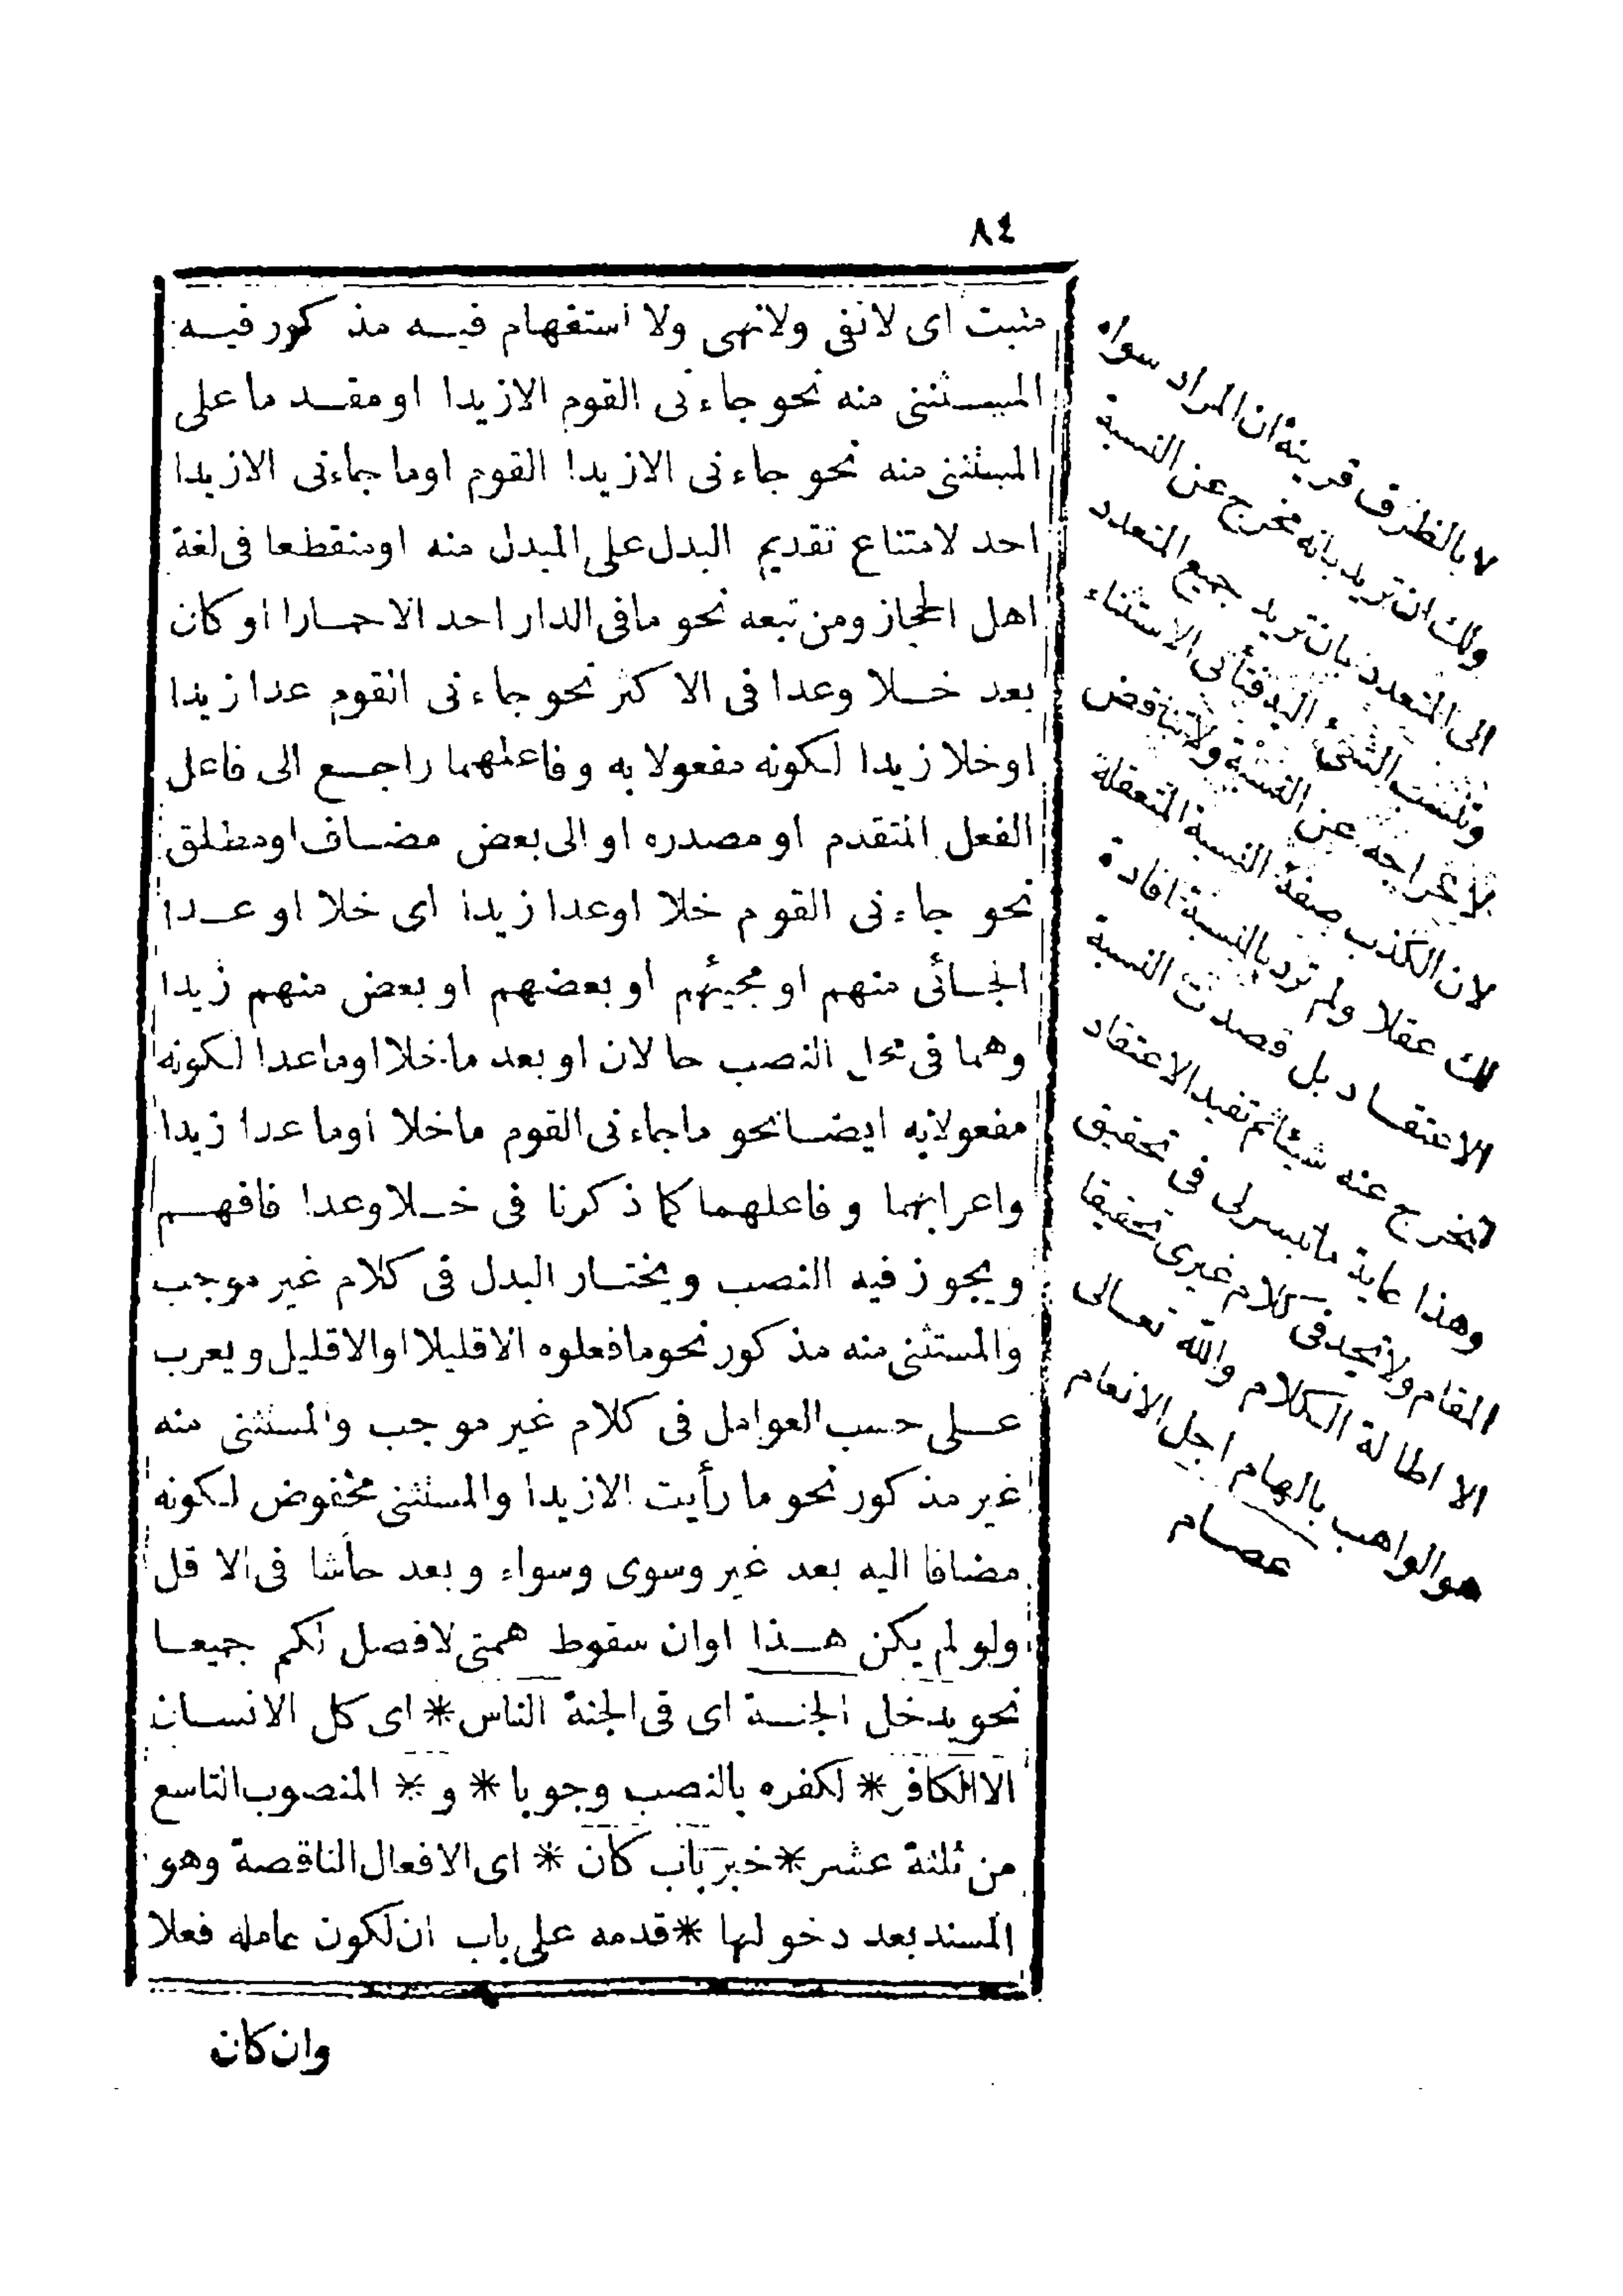 ٨٤
مثبت اى لانفى ولانهى ولا استفهام فيه مذكور فيه
المستثنى منه نحو جاءنى القوم الازيدا او مقدما على
المستثنى منه نحو جاءنى الازيدا القوم اوما جاءنى الازيدا
احد لامتناع تقديم البدل على المبدل منه اومنقطعا فى لغة
اهل الحجاز ومن تبعه نحو مافى الدار احد الاحمارا او كان
بعد خلا وعدا فى الاكثر نحو جاءنى القوم عدا زيدا
اوخلا زيدا لكونه مفعولا به وفاعلهما راجع الى فاعل
الفعل المتقدم او مصدره او الى بعض مضاف اومطلق
نحو جاءنى القوم خلا اوعدا زيدا اى خلا او عدا
الجائى منهم او مجيئهم او بعضهم او بعض منهم زيدا
وهما فى محل النصب حالان او بعد ماخلا اوماعدا لكونه
مفعولابه ايضانحو ماجاءنى القوم ماخلا اوما عدا زيدا
واعرابهما وفاعلهما كما ذكرنا فى خلا وعدا فافهم
ويجوز فيه النصب ويختار البدل فى كلام غير موجب
والمستثنى منه مذكور نحومافعلوه الاقليلا اوالاقليل ويعرب
على حسب العوامل فى كلام غير موجب والمستثنى منه
غير مذكور نحو ما رأيت الازيدا والمستثنى مخفوض لكونه
مضافا اليه بعد غير وسوى وسواء وبعد حاشا فى الاقل
ولو لم يكن هذا اوان سقوط همتى لافصل لكم جميعا
نحويدخل الجنة اى فى الجنة الناس * اى كل الانسان
الاالكافر * لكفره بالنصب وجوبا * و * المنصوب التاسع
من ثلثة عشر * خبر باب كان * اى الافعال الناقصة وهو
المسند بعد دخولها * قدمه على باب ان لكون عامله فعلا
وان كان
لا بالظرف قرينة ان المراد سواه
ولك ان تريد بانه مخرج عن النسبة
الى المتعدد بان تريد جميع المتعدد
وتنسب الشئ اليه فتأتى الاستثناء
لاخراجه عن النسبة ولا تناقض
لان الكذب صفة النسبة المتعقلة
لك عقلا ولم ترد بالنسبة افادة
الاعتقاد بل قصدت النسبة
لتخرج عنه شيئا ثم تفيد الاعتقاد
وهذا غاية ما تيسر لى فى تحقيق
المقام ولا تجد فى كلام غيرى تحقيقا
الا اطالة الكلام والله تعالى
هو الواهب بالهام اجل الانعام
عصام